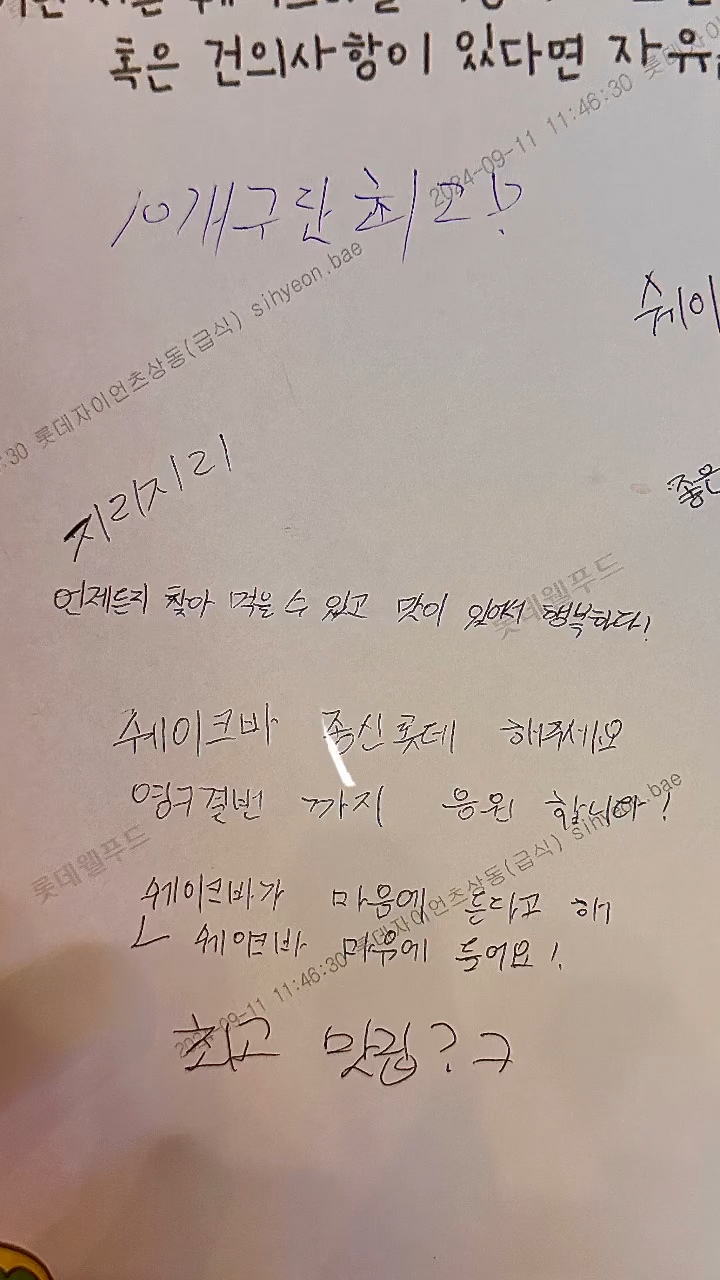 혹은 건의사항이 있다면 자유
10개구단 최고!
쉐이
지리지리
좋은
언제든지 찾아 먹을 수 있고 맛이 있어서 행복하다!
쉐이크바 종신롯데 해주세요
영구결번 까지 응원 합니다!
쉐이크바가 마음에 든다고 해
ㄴ 쉐이크바 마음에 들어요!
최고 맛집?ㅋ
2024-09-11 11:46:30 롯데
:30 롯데자이언츠상동(급식) sihyeon.bae
롯데웰푸드
롯데웰푸드
2024-09-11 11:46:30 롯데자이언츠상동(급식) sihyeon.bae